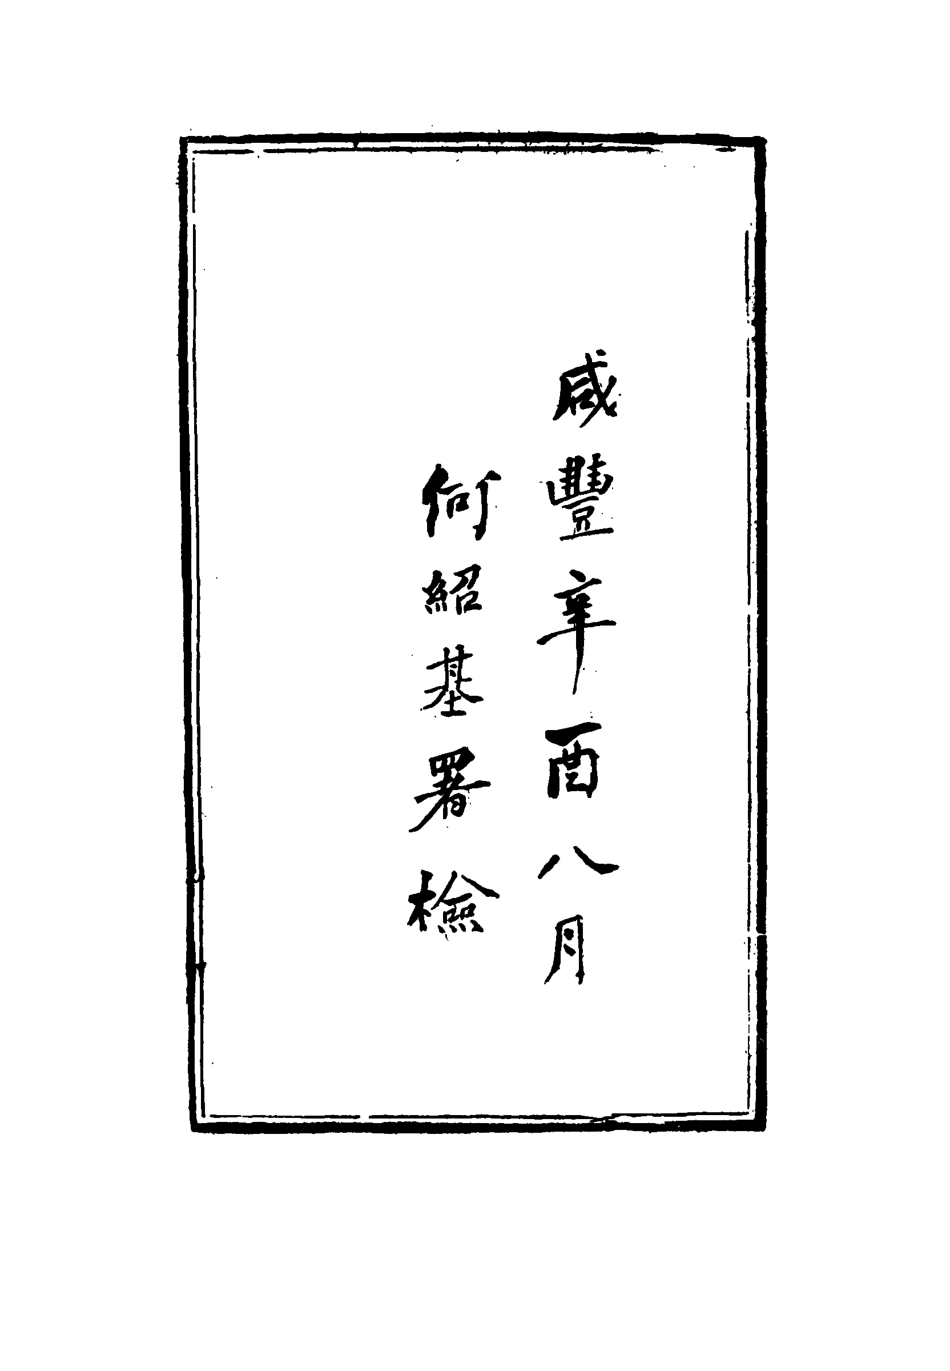 咸豐辛酉八月
何紹基署檢